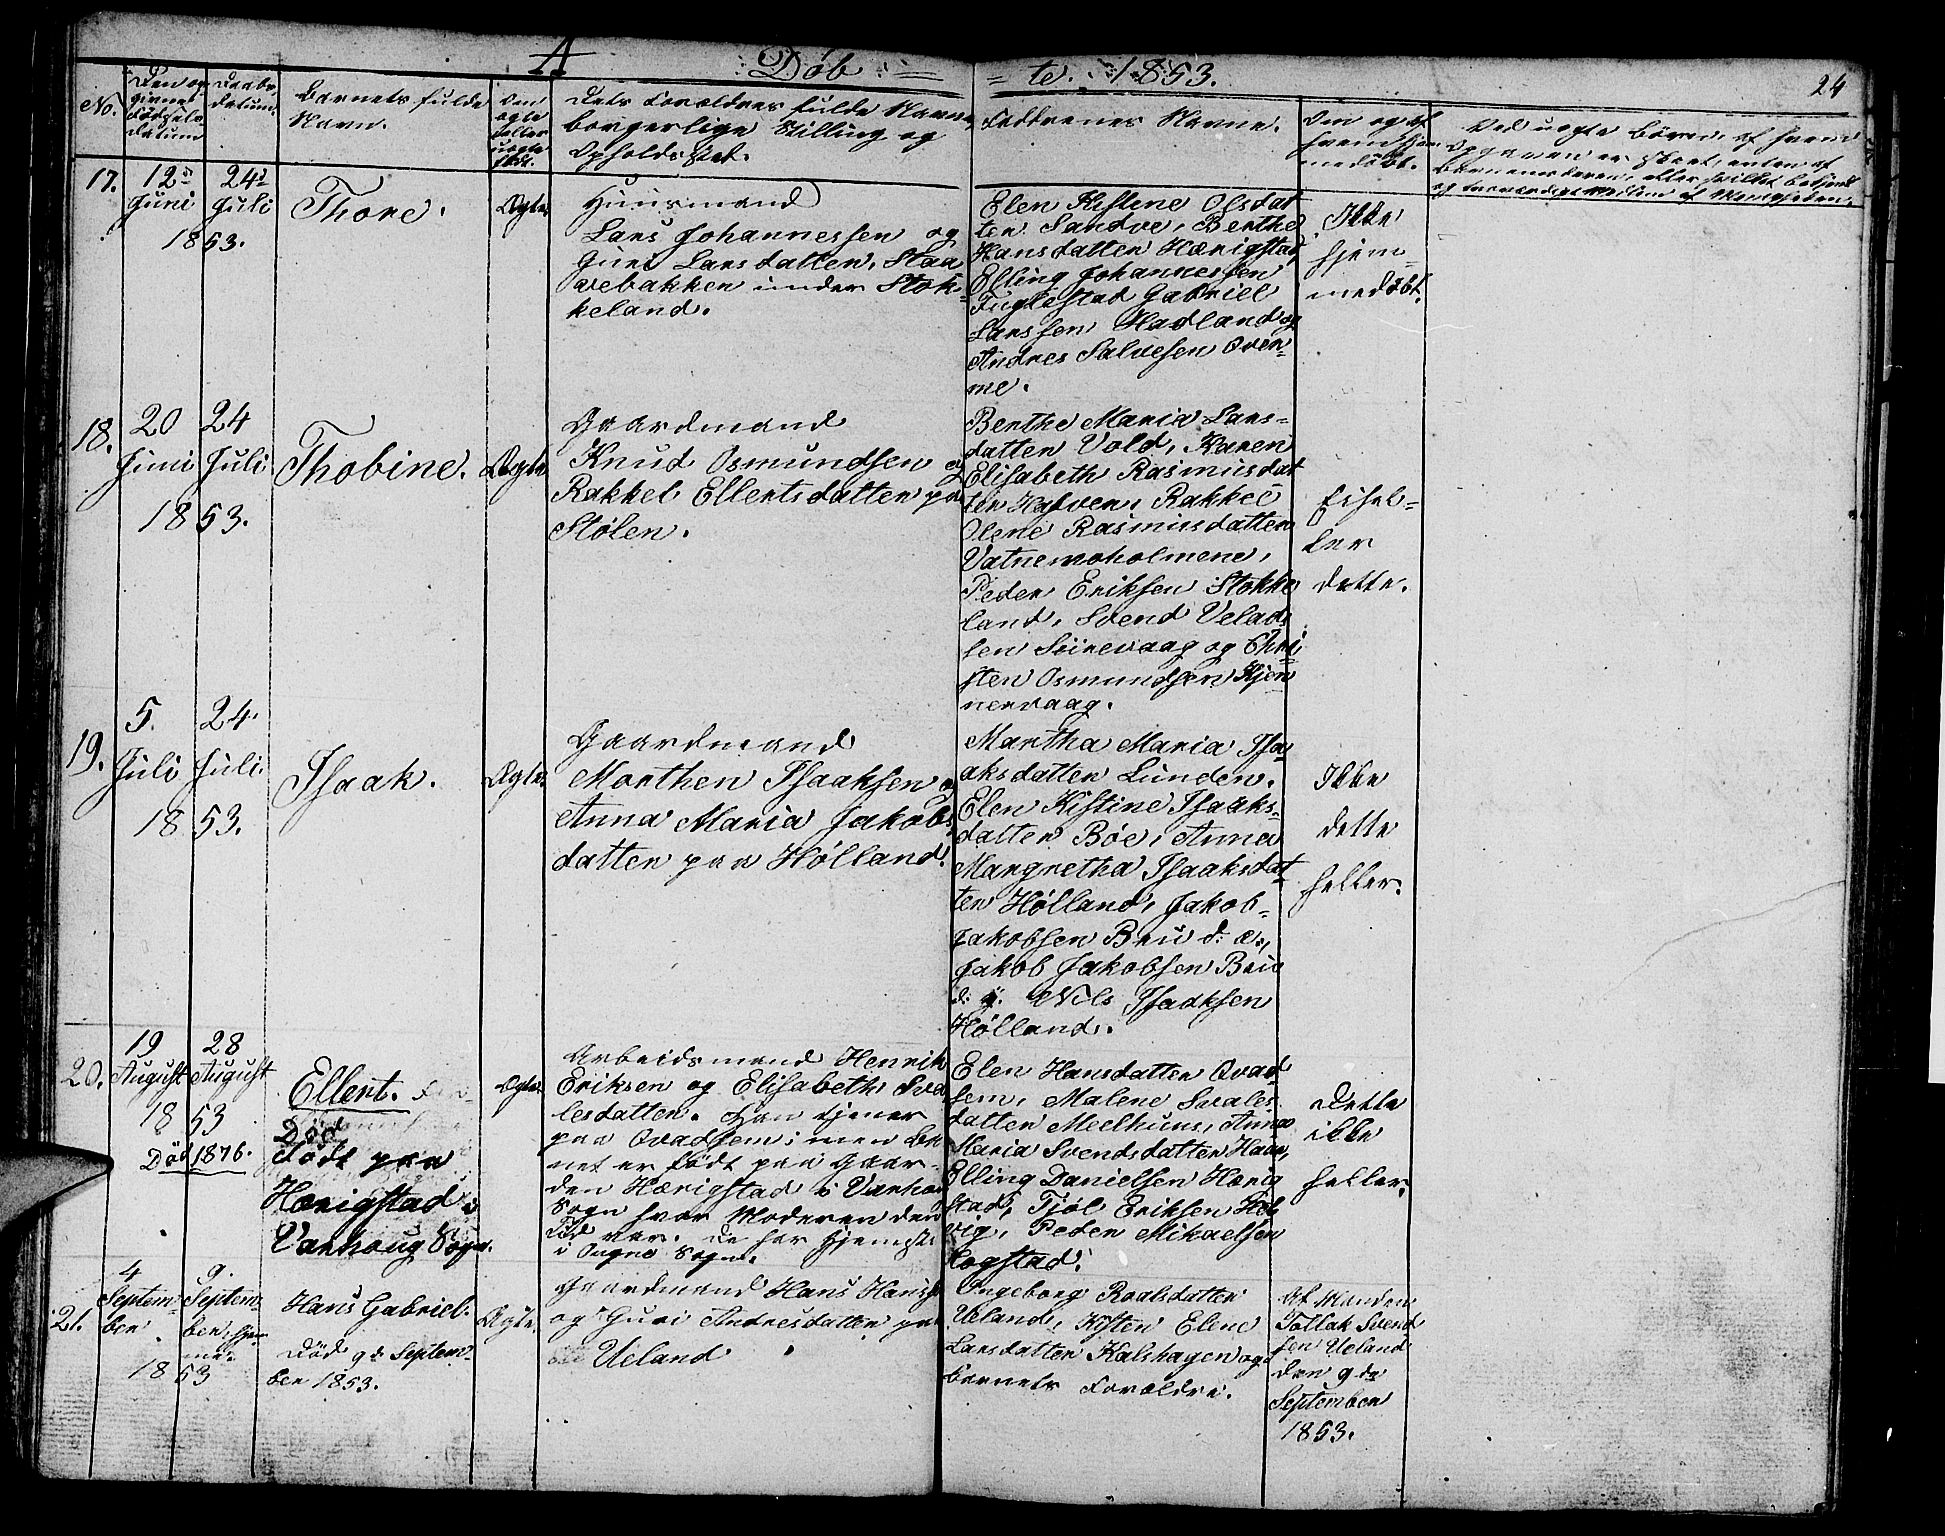 A
Døb te. 1853.
24
No.
Den og
givnes
Fødsels
Datum
Daabs
Datum.
Barnets fulde
Navn.
Om
ægte
eller
uægte
født.
Dets Forældres fulde Navne,
borgerlige Stilling og
Opholdssted.
Faddrenes Navne.
Om og af
hvem hjem
medøbt.
Ved uægte Børn, af hvem
Opgaven er skeet, enten af
17.
12te
Juni
24de
Juli
1853.
Thore.
Ægte
Huusmand
Lars Johannessen og
Guri Larsdatter, Staa
vebakken under Stok-
keland.
Elen Kistene Olsdat
ter Sandve, Berthe
Hansdatter Hærigstad,
Elling Johannessen
Fuglestad Gabriel
Larssen Hadland og
Andres Salvesen Oven-
me.
Ikke
hjem-
medøbt.
18.
20
Juni
24
Juli
1853.
Thobine.
Ægte
Gaardmand
Knud Osmundsen og
Rakkel Ellertsdatter paa
Stølen.
Berthe Maria Lars-
datter Vold, Karen
Elisabeth Rasmusdat
ter Rakkel
Olene Rasmusdatter
Vatnemoholmene,
Peder Eriksen Stokke
land, Svend Velads
sen Siirevaag og Chri
sten Osmundsen Kjen
nervaag.
Eihel-
ler
dette.
19.
5.
Juli
24.
Juli.
1853.
Isaak.
Ægte.
Gaardmand
Morthen Isaaksen og
Anna Maria Jakobs
datter paa Hølland.
Martha Maria Isa-
aksdatter Lunden.
Elen Kistine Isaaks-
datter Bøe, Anna
Margretha Isaaksdat
ter Hølland, Jakob-
Jakobsen Bru d. æ.,
Jakob Jakobsen Bru
d. y. Nils Isaaksen
Hølland.
Ikke
dette
heller.
20.
19
August
28
August
1853
Død 1876.
Ellert.
Død
Født paa
Hærigstad i
Varhoug Sogn.
Ægte.
Arbeidsmand Henrik
Eriksen og Elisabeth Sva
lesdatter. Han tjener
paa Qvadsem; men Ba
net er født paa Gaar-
den Hærigstad i Varhoug
Sogn hvor Moderen den
Tid var. De har Hjemst.
i Ougne Sogn.
Elen Hansdatter Qvad
sem, Malene Svales
datter Meelhuus, Anna
Maria Svendsdatter Haar,
Elling Danielsen Hærig
stad, Tjøl Eriksen Hel
vig, Peder Mikaelsen
Hogstad.
Dette
ikke
heller.
21.
4
Septem-
ber
9.
Septem
ber, hjem
me-
1853
Hans Gabriel.
Død 9de Septem-
ber 1853.
Ægte.
Gaardmand Hans Hansse
og Guri Andresdatter paa
Ueland
Ingeborg Roalsdatter
Ueland, Kisten Elene
Larsdatter Kalshagen og
Barnets Forældre.
Af Manden
Tollak Svend
sen Ueland
den 9de
September
1853.